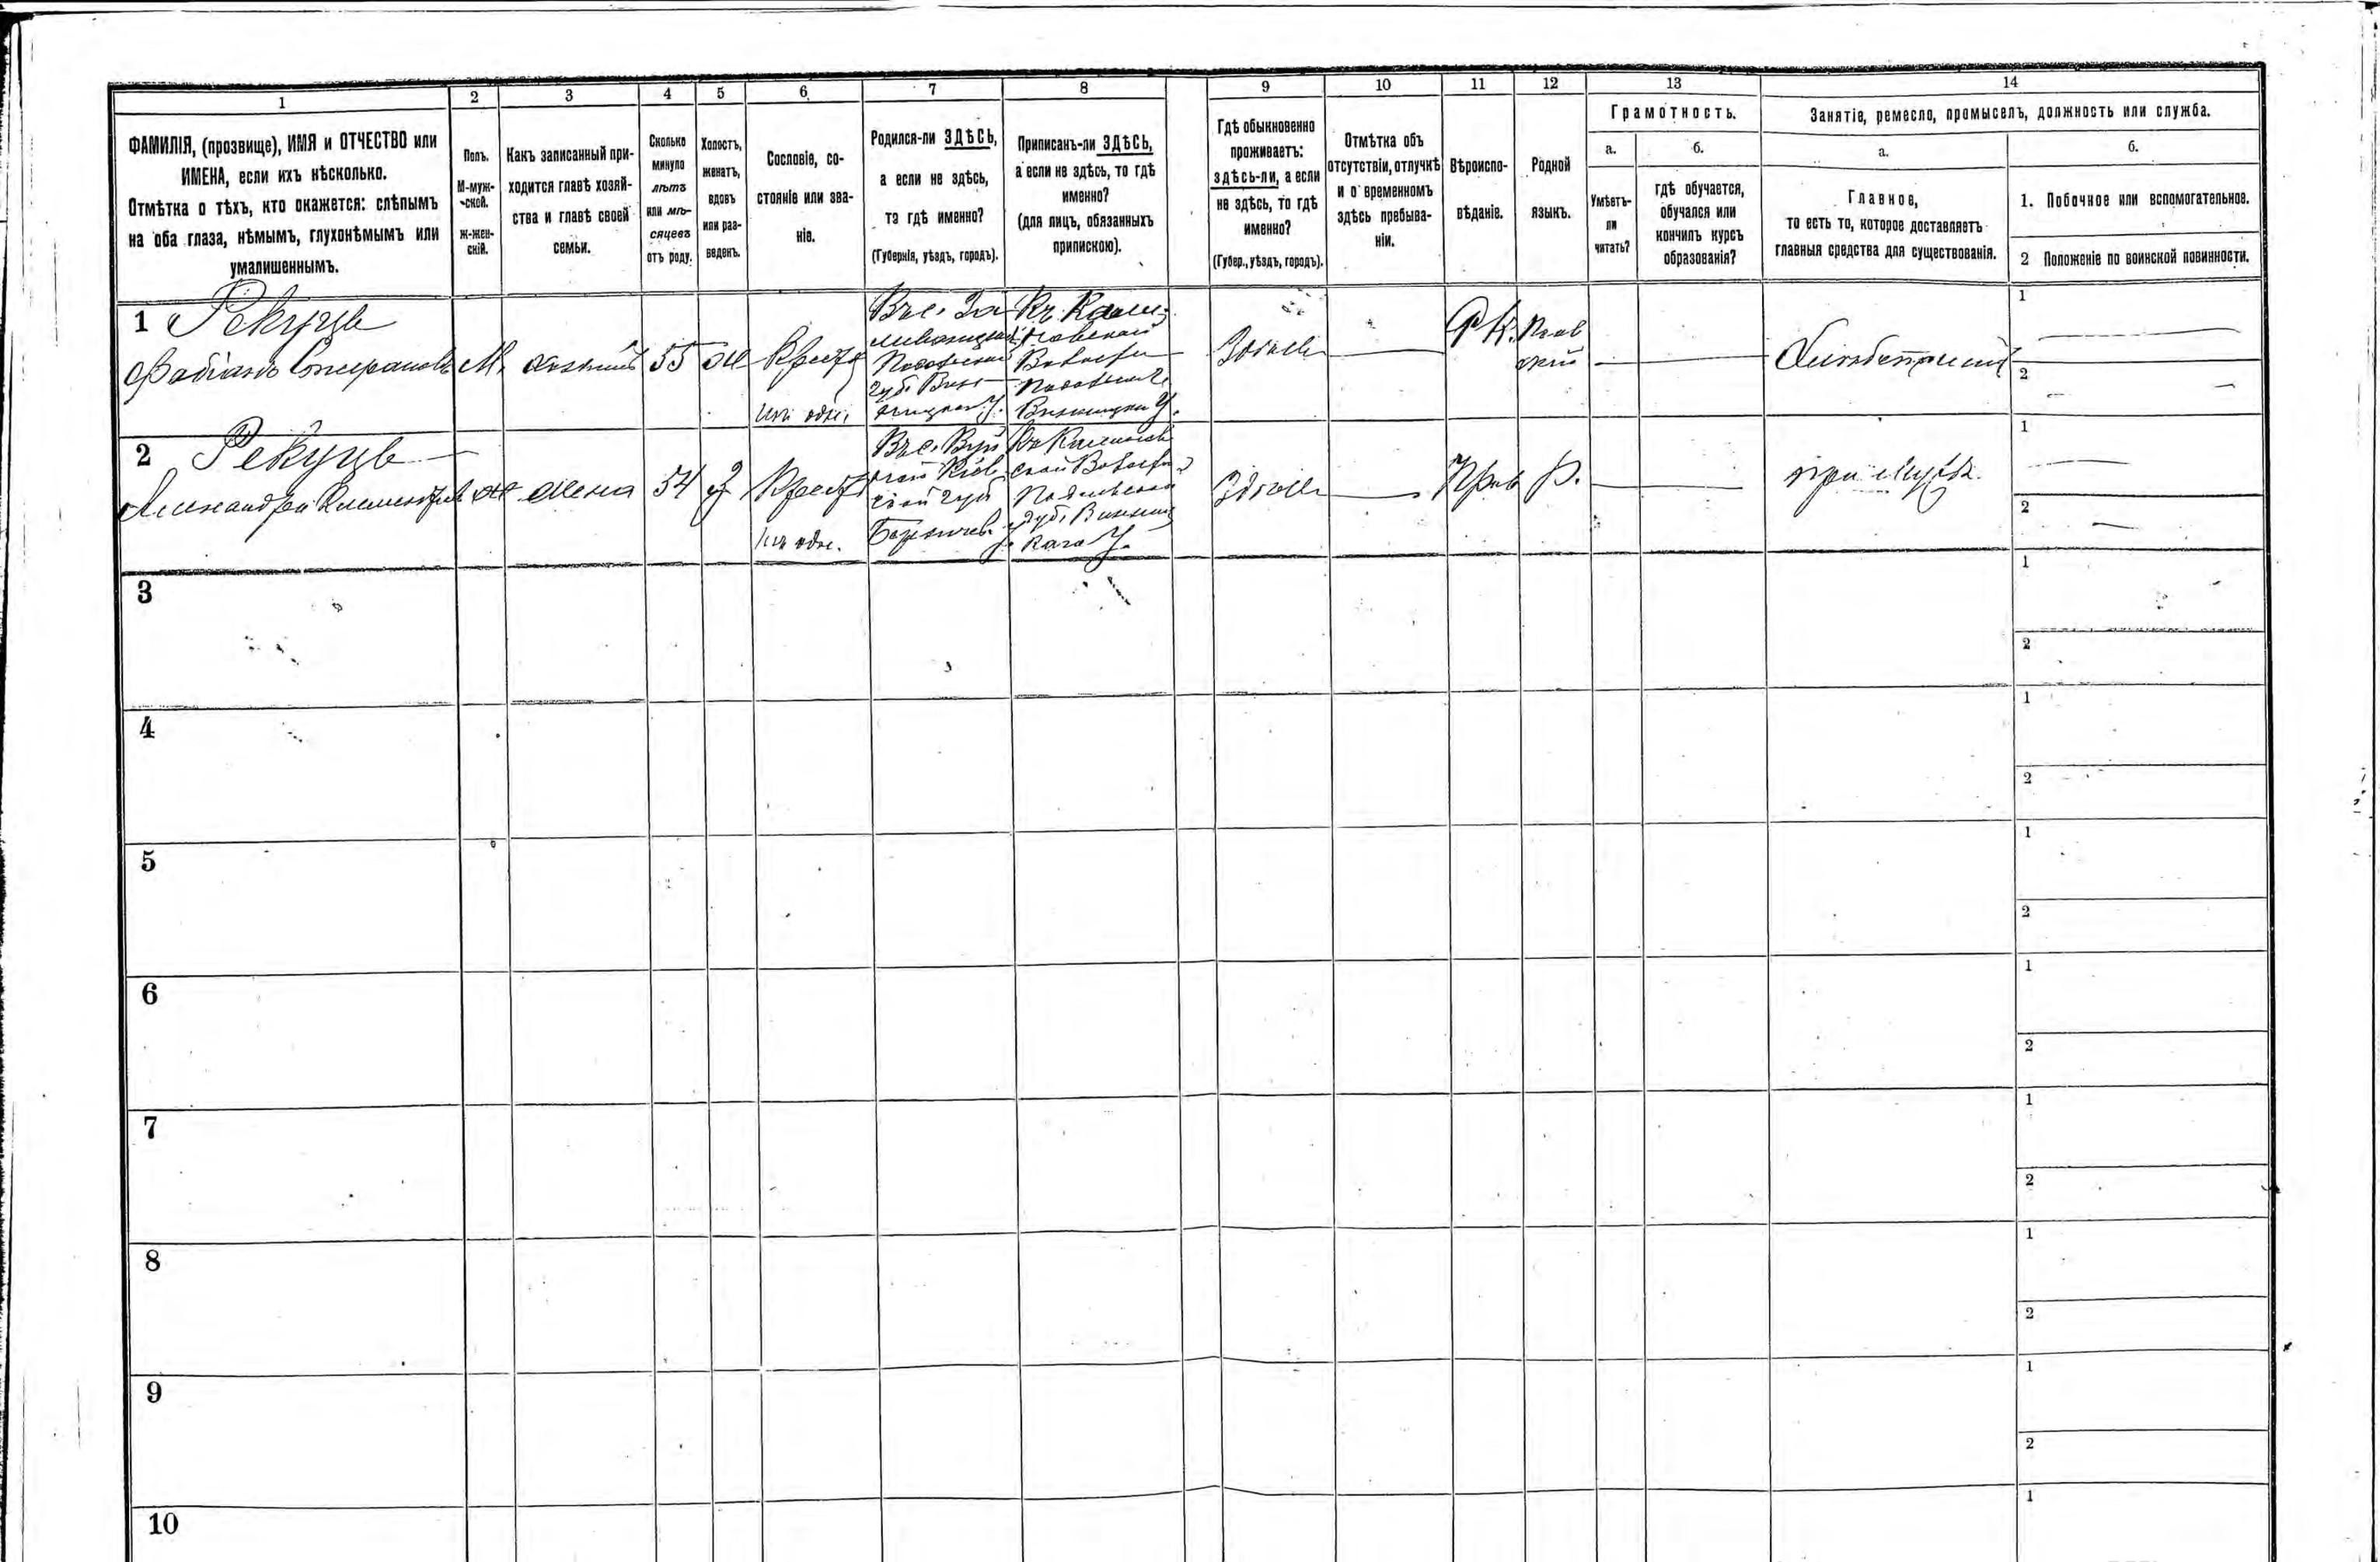 1 2 3 4 5 6 7 8 9 10 11 12 13 14
ФАМИЛІЯ, (прозвище), ИМЯ и ОТЧЕСТВО или
ИМЕНА, если ихъ нѣсколько.
Отмѣтка о тѣхъ, кто окажется: слѣпымъ
на оба глаза, нѣмымъ, глухонѣмымъ или
умалишеннымъ.
Полъ.
М-муж-
ской.
ж-жен-
скій.
Какъ записанный при-
ходится главѣ хозяй-
ства и главѣ своей
семьи.
Сколько
минуло
лѣтъ
или мѣ-
сяцевъ
отъ роду.
Холостъ,
женатъ,
вдовъ
или раз-
веденъ.
Сословіе, со-
стояніе или зва-
ніе.
Родился-ли ЗДѢСЬ,
а если не здѣсь,
то гдѣ именно?
(Губернія, уѣздъ, городъ).
Приписанъ-ли ЗДѢСЬ,
а если не здѣсь, то гдѣ
именно?
(для лицъ, обязанныхъ
припискою).
Гдѣ обыкновенно
проживаетъ:
здѣсь-ли, а если
не здѣсь, то гдѣ
именно?
(Губер., уѣздъ, городъ).
Отмѣтка объ
отсутствіи, отлучкѣ
и о временномъ
здѣсь пребыва-
ніи.
Вѣроиспо-
вѣданіе.
Родной
языкъ.
Грамотность.
а.
Умѣетъ-
ли
читать?
б.
гдѣ обучается,
обучался или
кончилъ курсъ
образованія?
Занятіе, ремесло, промыселъ, должность или служба.
а.
Главное,
то есть то, которое доставляетъ
главныя средства для существованія.
б.
1. Побочное или вспомогательное.
2 Положеніе по воинской повинности.
1 Рекуць
Фабіанъ
М.
55
Ж
Крест
Въ с.
Къ
Подольской
Волости
Здѣсь
РК.
Поль
ский
1
2
2 Рекуць
Александра
Ж
жена
54
З
Крест
Въ с.
Кіев
ской губ
Волости
Здѣсь
Прав
Р.
при мужѣ
1
2
3
1
2
4
1
2
5
1
2
6
1
2
7
1
2
8
1
2
9
1
2
10
1